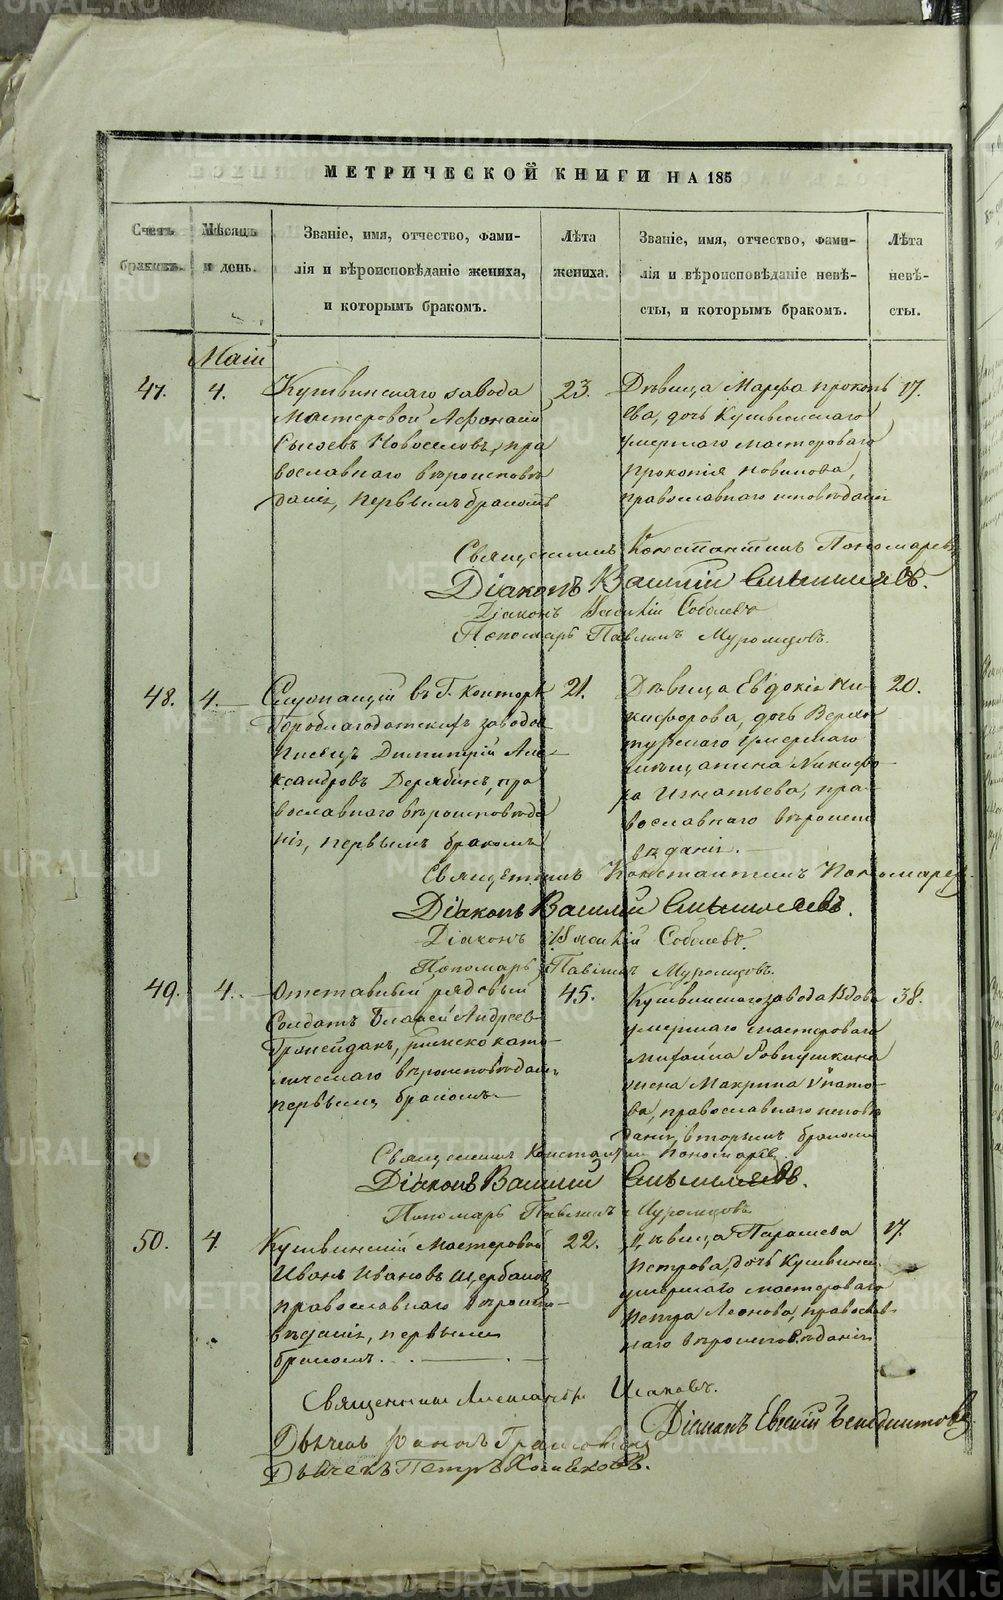 МЕТРИЧЕСКОЙ КНИГИ НА 185
Счетъ
браковъ.
Мѣсяцъ
и день.
Званіе, имя, отчество, фами-
лія и вѣроисповѣданіе жениха,
и которымъ бракомъ.
Лѣта
жениха.
Званіе, имя, отчество, фами-
лія и вѣроисповѣданіе невѣ-
сты, и которымъ бракомъ.
Лѣта
невѣ-
сты.
Маіи
47.
4.
Кушвинскаго завода
Мастеровой Афонасій
Сысоевъ Новоселовъ, пра
вославнаго вѣроисповѣ
данія, первымъ бракомъ
23.
Дѣвица Марфа Прокопь
ева, дочь Кушвинскаго
умершаго мастероваго
Прокопія Новикова,
православнаго исповѣданія
17.
Священникъ Константинъ Пономаревъ
Діаконъ Василій Смышляевъ.
Діаконъ Василій Соболевъ
Пономарь Павлинъ Муромцовъ.
48.
4.
Служащій въ Г. Конторѣ
Гороблагодатскихъ заводовъ
Писецъ Димитрій Але-
ксандровъ Дерябинъ, пра
вославнаго вѣроисповѣда
нія, первымъ бракомъ
21.
Дѣвица Евдокія Ни
кифорова, дочь Верхо
турскаго умершаго
мѣщанина Никифо-
ра Игнатьева, пра-
вославнаго вѣроиспо
вѣданія.
20.
Священникъ Константинъ Пономаревъ
Діаконъ Василій Смышляевъ.
Діаконъ Василій Соболевъ.
Пономарь Павлинъ Муромцовъ.
49.
4.
Отставный рядовый
Солдатъ Андреев
римско като-
лическаго вѣроисповѣданія
первымъ бракомъ
45.
Кушвинскаго завода Вдова
умершаго мастероваго
Михайла Ровнушкина
жена Макрина Ипато-
ва, православнаго исповѣ
данія, вторымъ бракомъ
38.
Священникъ Константинъ Пономаревъ
Діаконъ Василій Смышляевъ.
Пономарь Павлинъ Муромцовъ.
50.
4.
Кушвинскій мастеровой
Иванъ Ивановъ Щербаковъ
православнаго вѣроиспо-
вѣданія, первымъ
бракомъ.
22.
Дѣвица Парасковья
Петрова, дочь Кушвинск.
умершаго мастероваго
Петра Леонова, православ-
наго вѣроисповѣданія
17.
Священникъ Александръ Исаковъ.
Діаконъ Евгеній Бенедиктовъ
Дьячекъ
Дьячекъ Петръ Хомяковъ.
METRIKI.GASO-URAL.RU